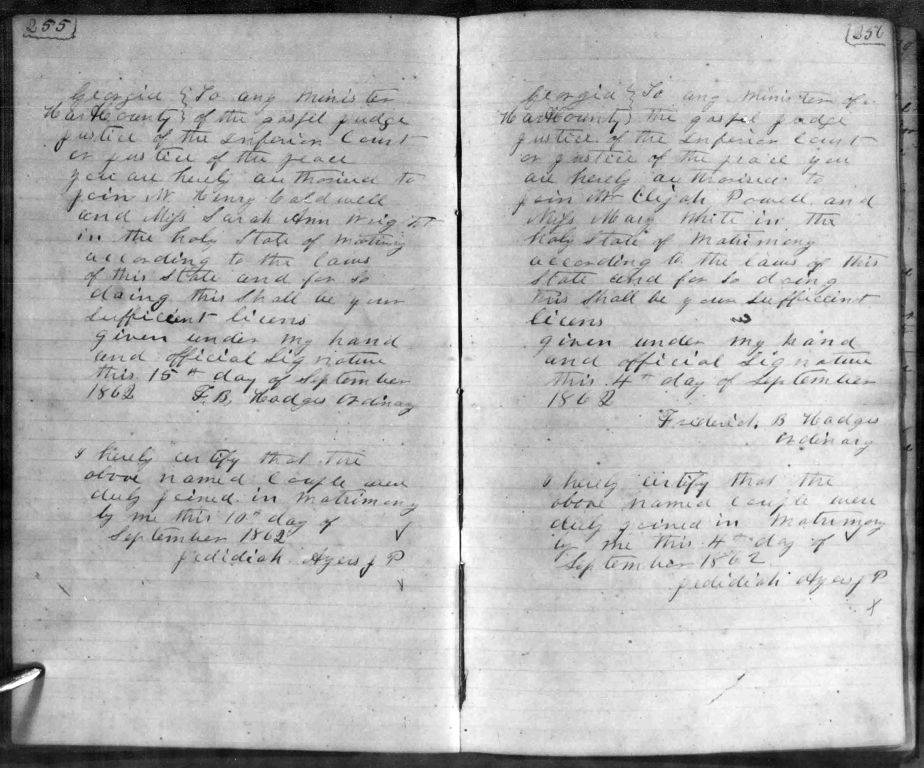 255
Georgia } To any Minister
Hart County } of the gospel judge
justice of the Inferior Court
or justice of the peace
you are herely authorised to
join W. Henry Caldwell
and Miss Sarah Ann Wright
in the holy State of Matrimony
according to the laws
of this State and for so
doing this Shall be your
Sufficient licens
given under my hand
and official Signature
this 15th day of September
1862 F. B. Hodges Ordinary
I herely certify that the
above named Couple were
duly joined in Matrimony
by me this 10th day of
September 1862
Jedidiah Ayers J P
256
Georgia } To any Minister of
Hart County } the gospel judge
justice of the Inferior Court
or justice of the peace you
are herely authorised to
join Mr Elijah Powell and
Miss Mary White in the
holy State of Matrimony
according to the laws of this
State and for so doing
this Shall be your Sufficient
licens
given under my hand
and official Signature
this 4th day of September
1862
Frederick B Hodges
Ordinary
I herely certify that the
above named Couple were
duly joined in Matrimony
by me this 4th day of
September 1862
Jedidiah Ayers J P